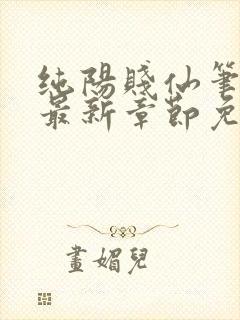 純陽賤仙筆
最新章節免
畫媚兒